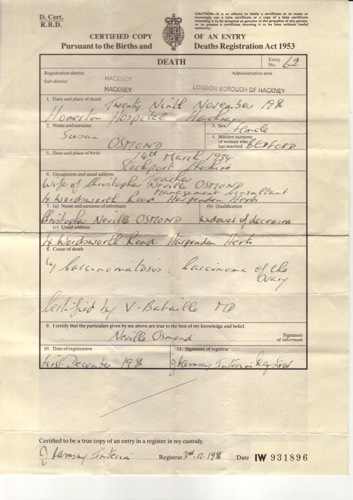 D. Cert.
R.B.D.
CAUTION:—It is an offence to falsify a certificate or to make or knowingly use a false certificate or a copy of a false certificate intending it to be accepted as genuine to the prejudice of any person, or to possess a certificate knowing it to be false without lawful authority.
CERTIFIED COPY OF AN ENTRY
Pursuant to the Births and Deaths Registration Act 1953
DEATH
Entry No. 62
Registration district HACKNEY
Administrative area
Sub-district HACKNEY
LONDON BOROUGH OF HACKNEY
1. Date and place of death Twenty Ninth November
Homerton Hospital Hackney
2. Name and surname
3. Sex Female
Susan
OSMOND
4. Maiden surname of woman who has married BEDFORD
5. Date and place of birth
March
Stockport Cheshire
6. Occupation and usual address Teacher
Wife of Christopher Neville OSMOND
Management Consultant
4 Wordsworth Road Harpenden Herts
7. (a) Name and surname of informant
(b) Qualification
Christopher Neville OSMOND
Widower of deceased
(c) Usual address
4 Wordsworth Road Harpenden Herts
8. Cause of death
Carcinomatosis. Carcinoma of the
Ovary
Certified by V. MB
9. I certify that the particulars given by me above are true to the best of my knowledge and belief.
Neville Osmond
Signature of informant
10. Date of registration
11. Signature of registrar
First December
J Ramsay Interim Registrar
Certified to be a true copy of an entry in a register in my custody.
J Ramsay Interim
Registrar
Date
IW 931896